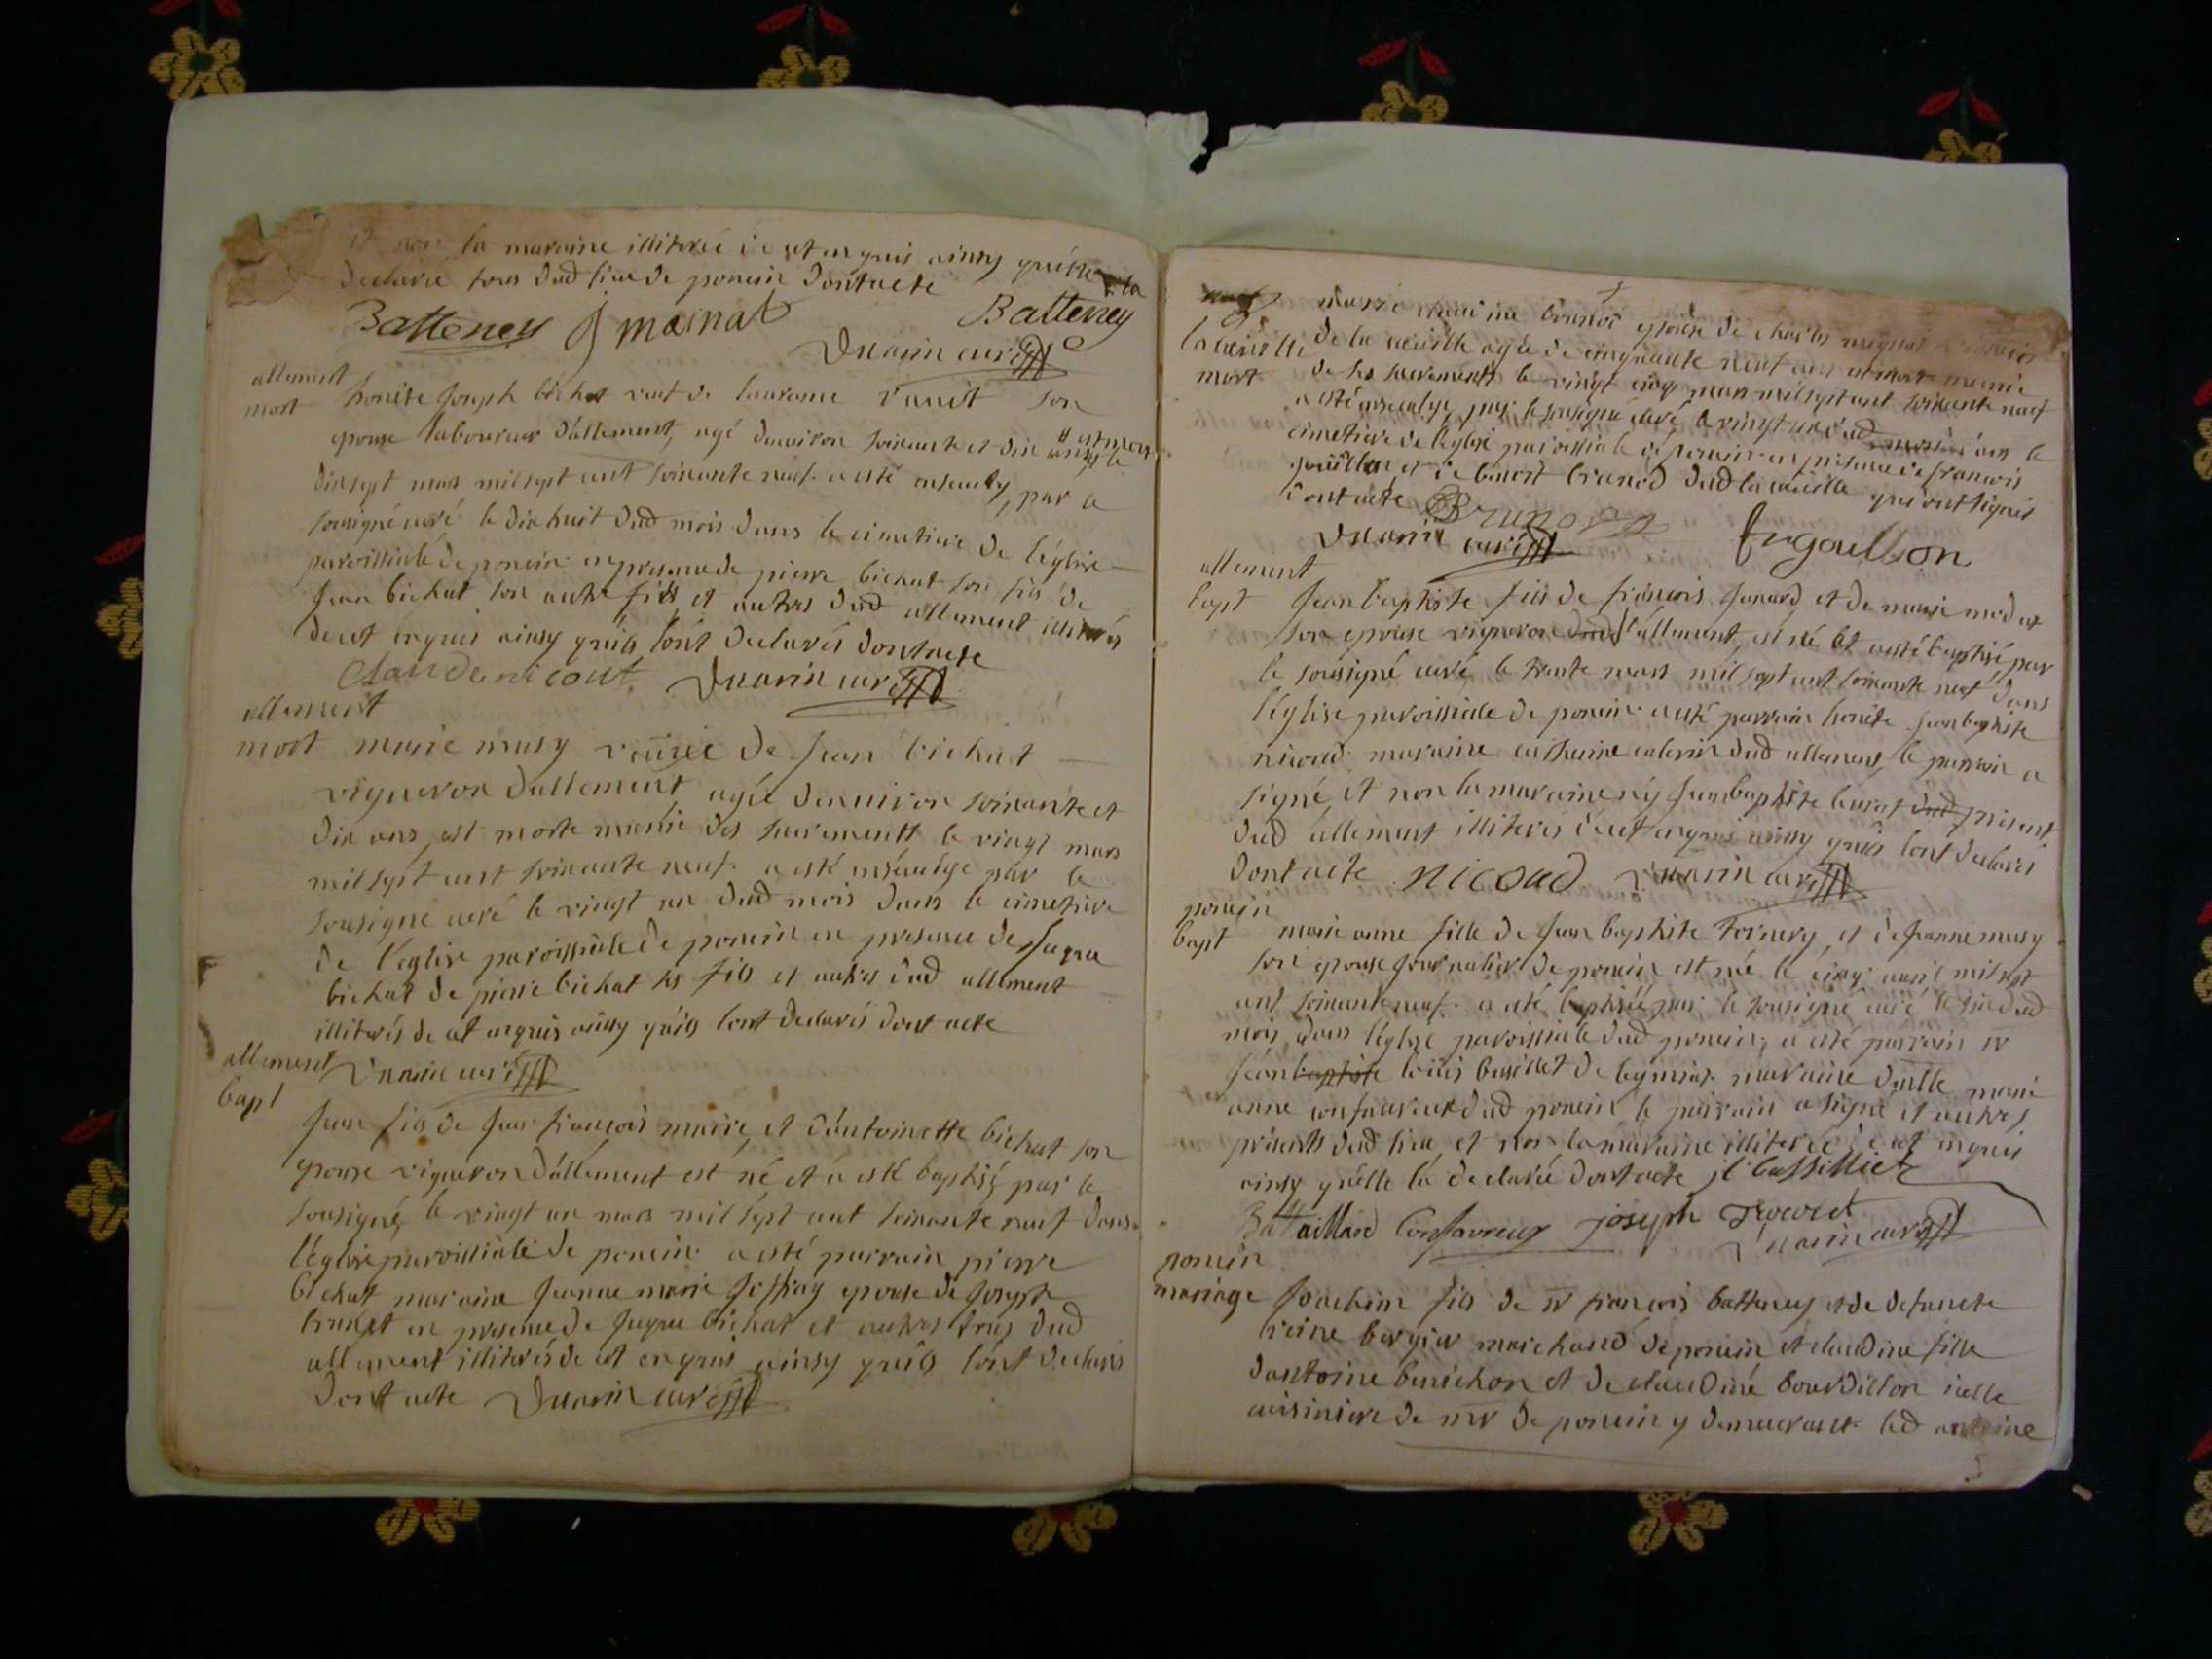 et non la maraine illiterée de cet enquis ainsy qu'elle la
declarée tous dud lieu de poncin dont acte
Batteney J mainat Batteney
Duarin curé
allement
mort honête Joseph bichat veuf de laurance son
epouse laboureur d'allement, agé denviron soixante et dix ans est mort le
dixsept mars mil sept cent soixante neuf. a esté enseuely, par le
sousigné curé le dix huit dud mois dans le cimetiere de l'église
paroissialle de poncin en presence de pierre bichat son fils de
Jean bichat son autre fils et autres dud allement illiterés
de cet enquis ainsy qu'ils l'ont declarés dont acte
Claude nicout Duarin curé
allement
mort marie musy veuve de Jean bichat
vigneron dallement agée denviron soixante et
dix ans est morte munie des sacrements le vingt mars
mil sept cent soixante neuf. a esté enseuelye par le
sousigné curé le vingt un dud mois dans le cimetiere
de l'église paroissialle de poncin en presence de Jaque
bichat de pierre bichat ses fils et autres dud allement
illiterés de cet enquis ainsy qu'ils lont declarés dont acte
allement Duarin curé
bapt
Jean fils de Jean françois marie et d'antoinette bichat son
epouse vigneron d'allement est né et a esté baptisé par le
sousigné, le vingt un mars mil sept cent soixante neuf dans
l'église paroissialle de poncin. a esté parrain pierre
bichat maraine Jeanne marie epouse de Joseph
en presence de Jaque bichat et autres tous dud
allement illiterés de cet enquis ainsy qu'ils l'ont declarés
dont acte Duarin curé
marie epouse de charles
la cueille de la cueille agée de cinquante neuf ans est morte munie
mort de ses sacrements le vingt cinq mars mil sept cent soixante neuf
a esté enseuelye par le sousigné curé le vingt dud mois dans le
cimetiere de l'église paroissialle de poncin en presence de françois
goüillon et de benoit brunod dud la cueille qui ont signés
dont acte Brunod
Duarin curé frgoullon
allement
bapt Jean baptiste fils de françois Janard et de marie
son epouse vigneron d'allement, est né et a esté baptisé par
le sousigné curé le trente mars mil sept cent soixante neuf dans
l'église paroissialle de poncin a esté parrain honête Jean baptiste
nicoud maraine catherine dud allement, le parrain a
signé, et non la maraine ny Jean baptiste present
dud allement illiterés de cet enquis ainsy qu'ils lont declarés
dont acte nicoud Duarin curé
poncin
bapt marie anne fille de Jean baptiste Tornery, et de Jeanne musy
son epouse journalier de poncin est née le cinq avril mil sept
cent soixante neuf. a esté baptisée par le sousigné curé le six dud
mois dans l'église paroissialle dud poncin, a esté parrain sr
Jean baptiste loüis de maraine dlle marie
anne confavreux dud poncin le parrain a signé et autres
présents dud lieu et non la maraine illiterée de cet enquis
ainsy qu'elle la declarée dont acte
Bataillard Confavreux joseph
Duarin curé
poncin
mariage Joachim fils de sr françois batteney et de defuncte
reine bergier marchand de poncin et claudine fille
dantoine benichon et de claudine bourdillon icelle
cuisiniere de mr de poncin y demeurant. led antoine